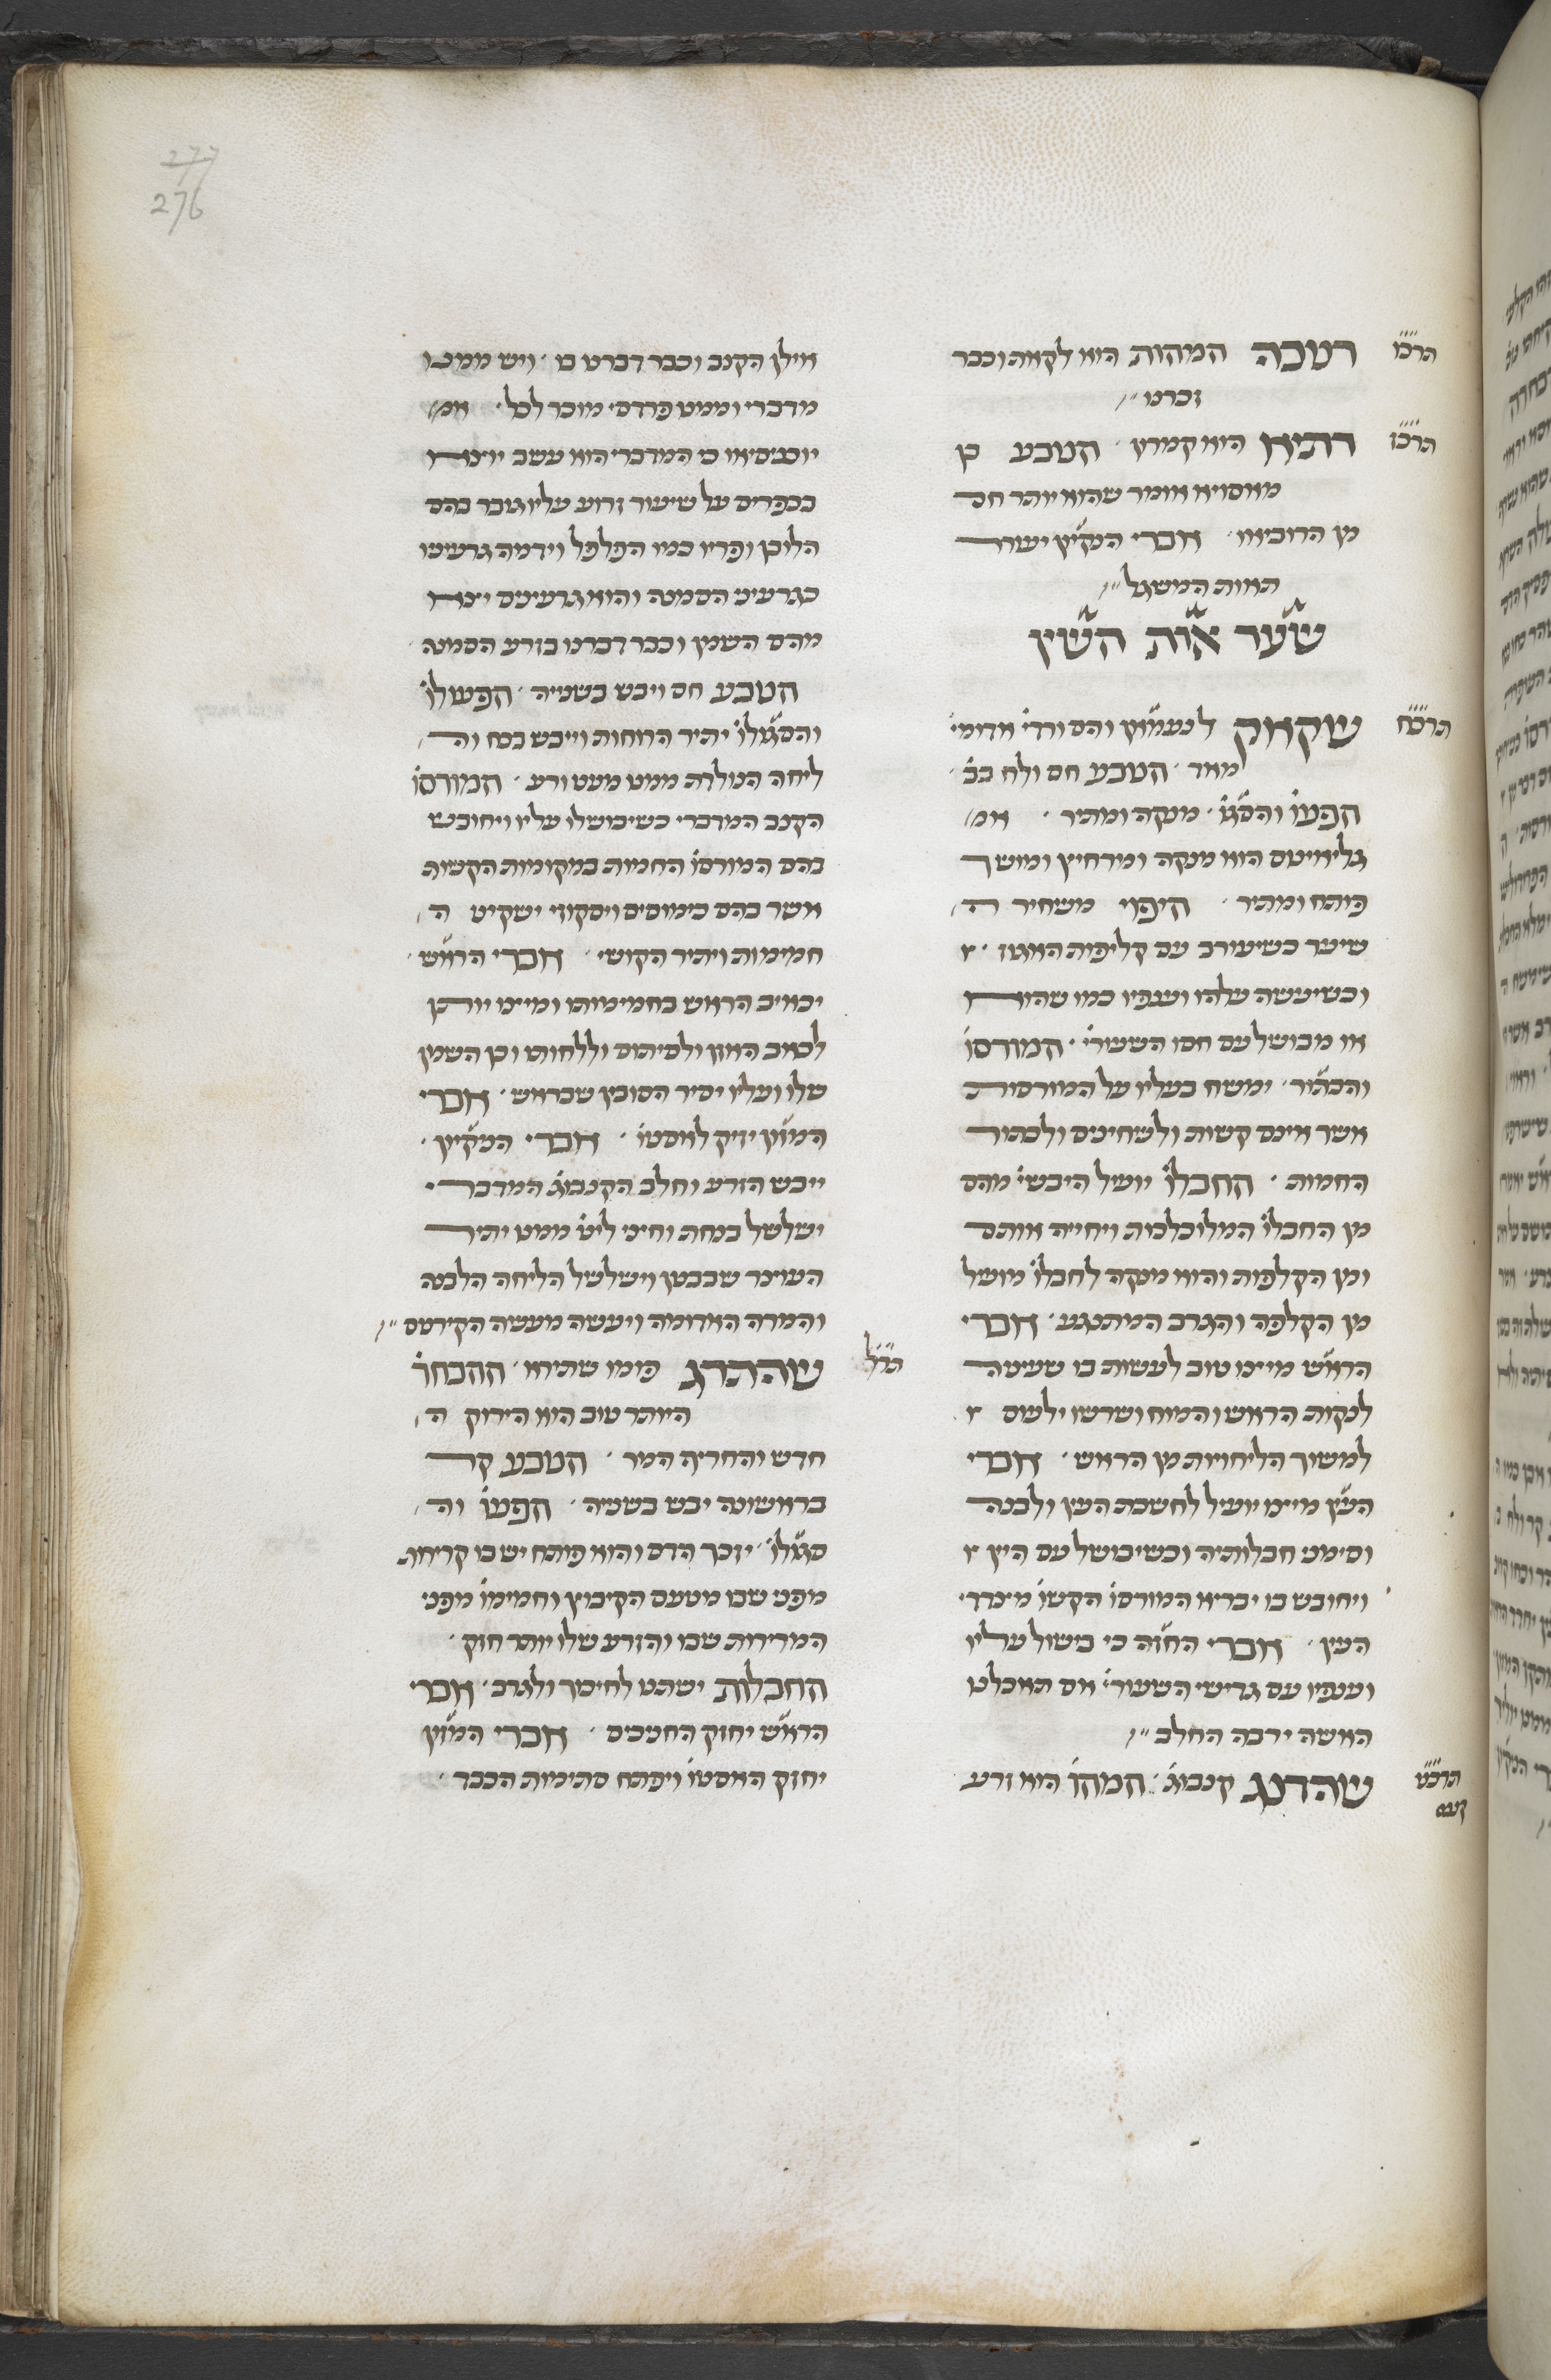 277
276
תרכו
רטבה המהות היא לקאת וכבר
זכרנו
תרכז
רתיא היא קמרון הטבע בן
מאסויא אומר שהוא יותר חם
מן הרוביאו אברי הנקיץ יעורר
תאות המשגל
שער אות השין
תרכח
שקאיק לנעמאן והם ורדי אדומי׳
מאד הטבע חם ולח בב׳
הפעו׳ והסגו׳ מנקה ומתיר אמ׳
גליאינוס הוא מנקה ומרחיץ ומושך
פותח ומתיר היפוי משחיר ה׳
שיער כשיעורב עם קליפות האגוז
וכשיעשה עלהו וענפיו כמו שהוא
או מבושל עם חסו השעורי׳ המורסו׳
והבהור׳ ימשח בעליו על המורסות
אשר אינם קשות ולשחינים ולבהור׳
החמות החבלו׳ יועיל היבשי׳ מהם
מן החבלו׳ המלוכלכות ויחייה אותם
ומן הקלפות והוא מנקה לחבלו׳ מועיל
מן הקלפה והגרב המתנגע אברי
הראש מימיו טוב לעשות בו שעיטה
לנקות הראש והמוח ושרשו ילעוס
למשוך הליחויות מן הראש אברי
העין מימיו יועיל לחשכת העין ולבנה
וסימני חבלותיה וכשיבושל עם היין
ויחובש בו יבריא המורסו׳ הקשו׳ מגדר
העין אברי החזה כי בישול עליו
וענפיו עם גרישי השעורי׳ אם תאכלנו
האשה ירבה החלב
תרכט
קנבוס
שהדנג קנבוג׳ המהו׳ הוא זרע
אילן הקנב וכבר דברנו בו ויש ממנו
מדברי וממנו פרדסי מוכר לכל אמ׳
יוכניסיאו כי המדברי הוא עשב יוצא
בכפרים על שיעור זרוע עליו גובר בהם
הלובן ופריו כמו הפלפל וידמה גרעינו
כגרעיני הסמנה והוא גרעינים יצא
מהם השמן וכבר דברנו בזרע הסמנה
הטבע חם ויבש בשנייה הפעולו׳
והסגולו׳ יתיר הרוחות וייבש בכח וה׳
ליחה הנולדת ממנו מעט ורע המורסו׳
הקנב המדברי כשיבושלו עליו ויחובש
בהם המורסו׳ החמות במקומות הקשות
אשר בהם כימוסים ויסקודי ישקיט ה׳
חמימות ויתיר הקושי אברי הראש
יכאיב הראש בחמימותו ומימיו יורקן
לכאב האזן ולסיתום וללחותו וכן השמן
שלו ועליו יסיר הסובין שבראש אברי
המזון יזיק לאסטו׳ אברי הנקיץ
ייבש הזרע וחלב הקנבוג׳ המדברי
ישלשל בנחת וחצי ליט׳ ממנו יתיר
העיצר שבבטן וישלשל הליחה הלבנה
והמרה האדומה ויעשה מעשה הקירטם
תרל
שהתרג פומו שתירא ההבחר׳
היותר טוב הוא הירוק ה׳
חדש והחריף המר הטבע קר
בראשונה יבש בשניה הפעו׳ וה׳
סגולו׳ יזכך הדם והוא פותח יש בו קרירות
מפני שבו מטעם הקיבוץ וחמימו׳ מפני
המרירות שבו והזרע שלו יותר חזק
החבלות ישתנו לחיכוך ולגרב אברי
הראש יחזק החניכים אברי המזון
יחזק האסטו׳ ויפתח סתימות הכבד